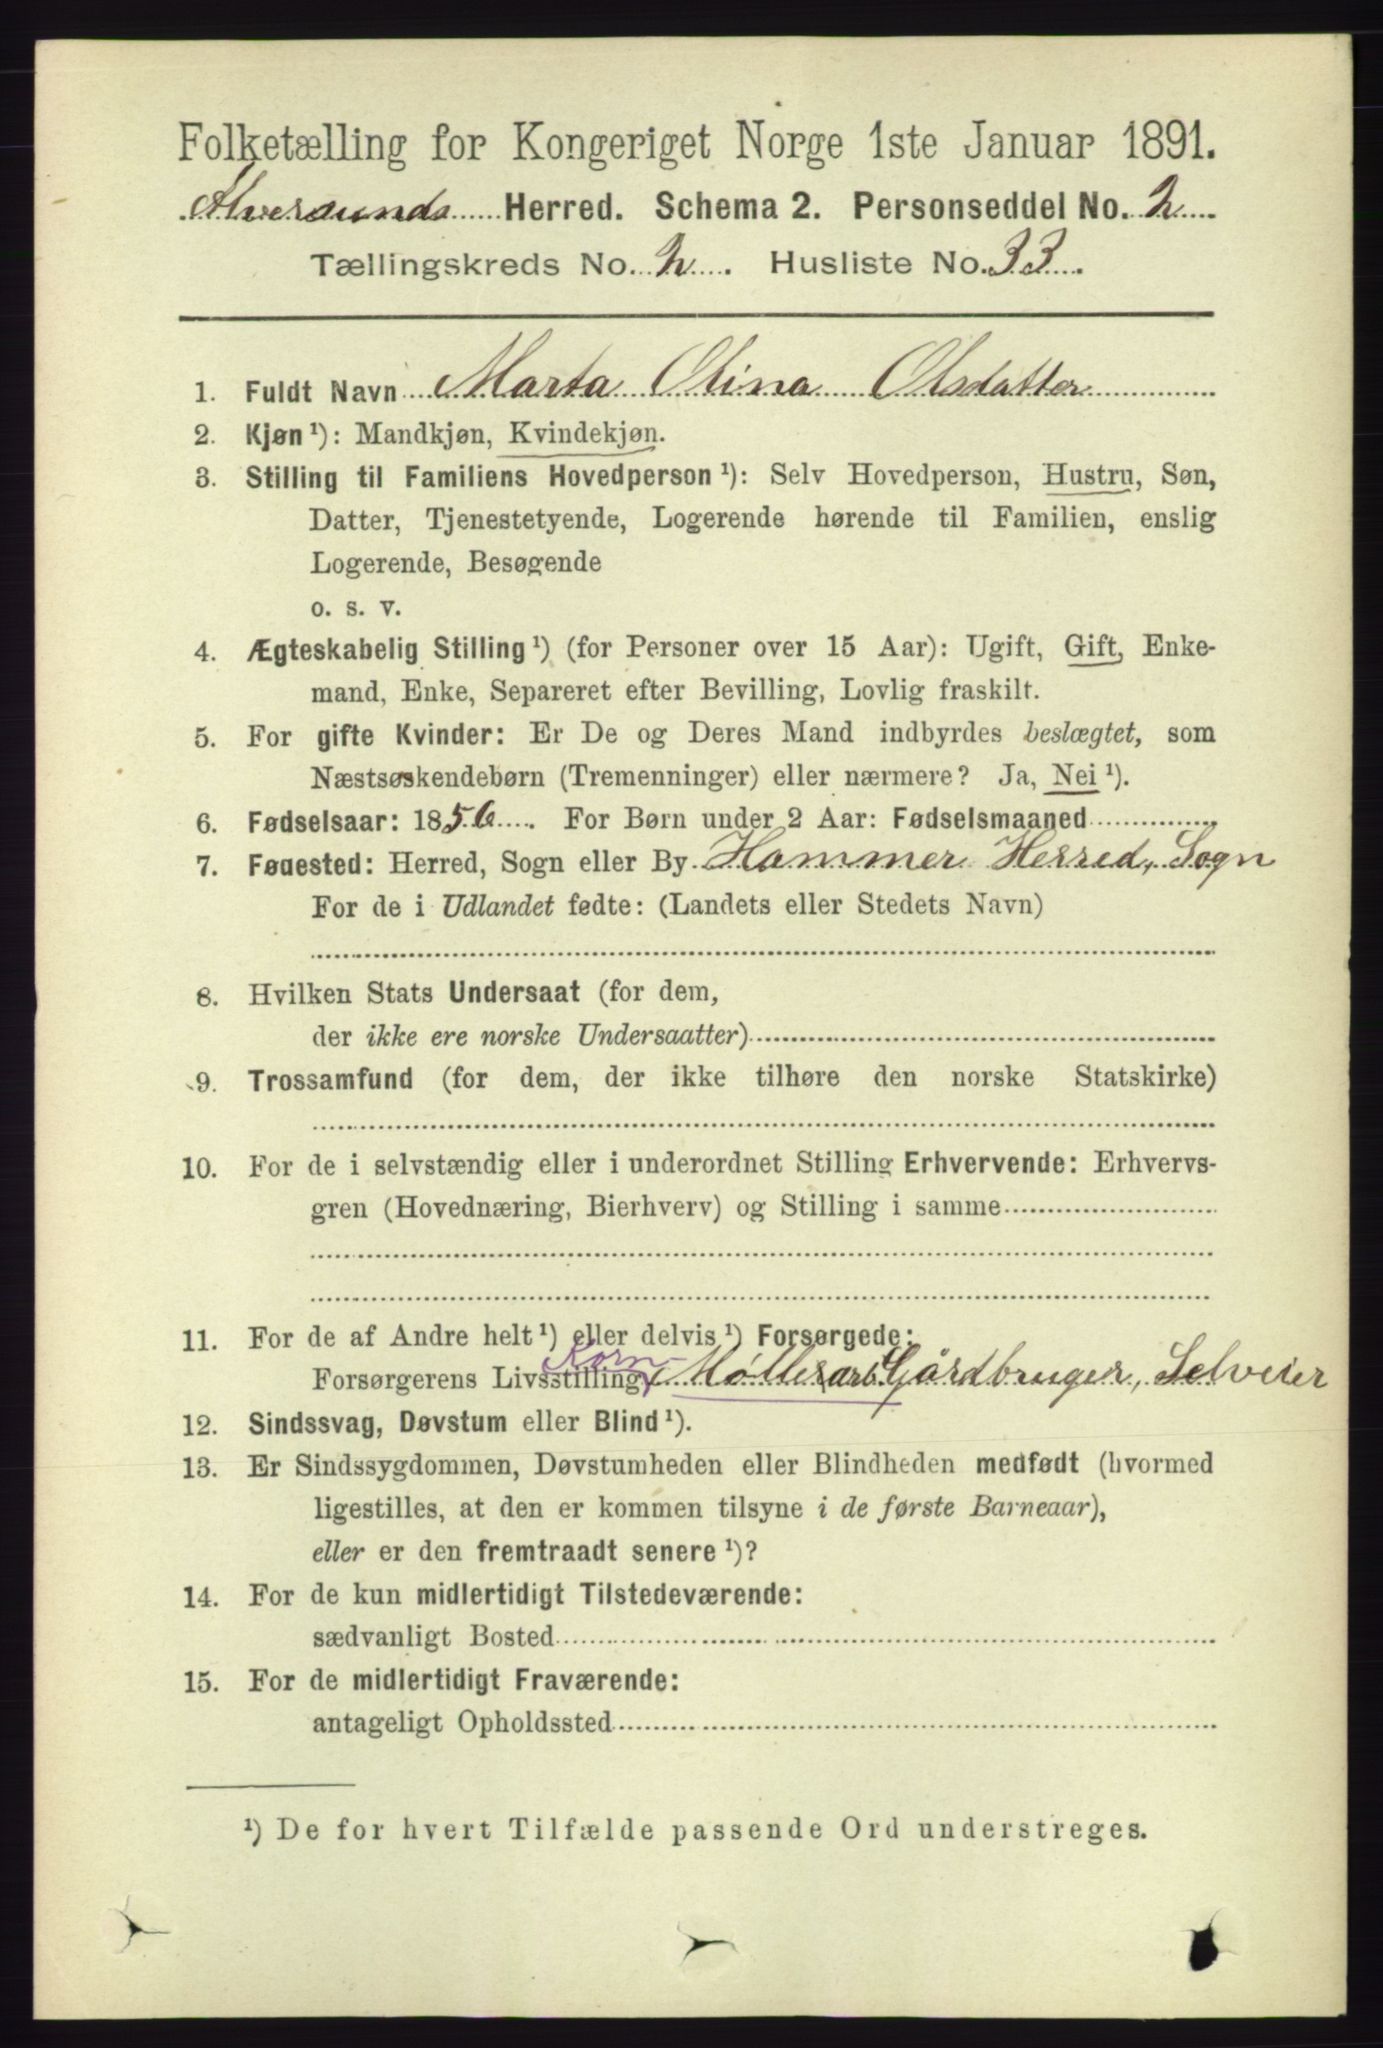 Folketælling for Kongeriget Norge 1ste Januar 1891.
Alversunds Herred. Schema 2. Personseddel No. 2
Tællingskreds No. 2. Husliste No. 33.
1. Fuldt Navn Marta Olina Olsdatter
2. Kjøn ¹): Mandkjøn, Kvindekjøn.
3. Stilling til Familiens Hovedperson ¹): Selv Hovedperson, Hustru, Søn,
Datter, Tjenestetyende, Logerende hørende til Familien, enslig
Logerende, Besøgende
o. s. v.
4. Ægteskabelig Stilling ¹) (for Personer over 15 Aar): Ugift, Gift, Enke-
mand, Enke, Separeret efter Bevilling, Lovlig fraskilt.
5. For gifte Kvinder: Er De og Deres Mand indbyrdes beslægtet, som
Næstsøskendebørn (Tremenninger) eller nærmere? Ja, Nei ¹).
6. Fødselsaar: 1856. For Børn under 2 Aar: Fødselsmaaned
7. Føuested: Herred, Sogn eller By Hammer Herred, Sogn
For de i Udlandet fødte: (Landets eller Stedets Navn)
8. Hvilken Stats Undersaat (for dem,
der ikke ere norske Undersaatter)
9. Trossamfund (for dem, der ikke tilhøre den norske Statskirke)
10. For de i selvstændig eller i underordnet Stilling Erhvervende: Erhvervs-
gren (Hovednæring, Bierhverv) og Stilling i samme
11. For de af Andre helt ¹) eller delvis ¹) Forsørgede:
Korn-
Forsørgerens Livsstilling Møllerarb. Gårdbruger, Selveier
12. Sindssvag, Døvstum eller Blind ¹).
13. Er Sindssygdommen, Døvstumheden eller Blindheden medfødt (hvormed
ligestilles, at den er kommen tilsyne i de første Barneaar),
eller er den fremtraadt senere ¹)?
14. For de kun midlertidigt Tilstedeværende:
sædvanligt Bosted
15. For de midlertidigt Fraværende:
antageligt Opholdssted
¹) De for hvert Tilfælde passende Ord understreges.